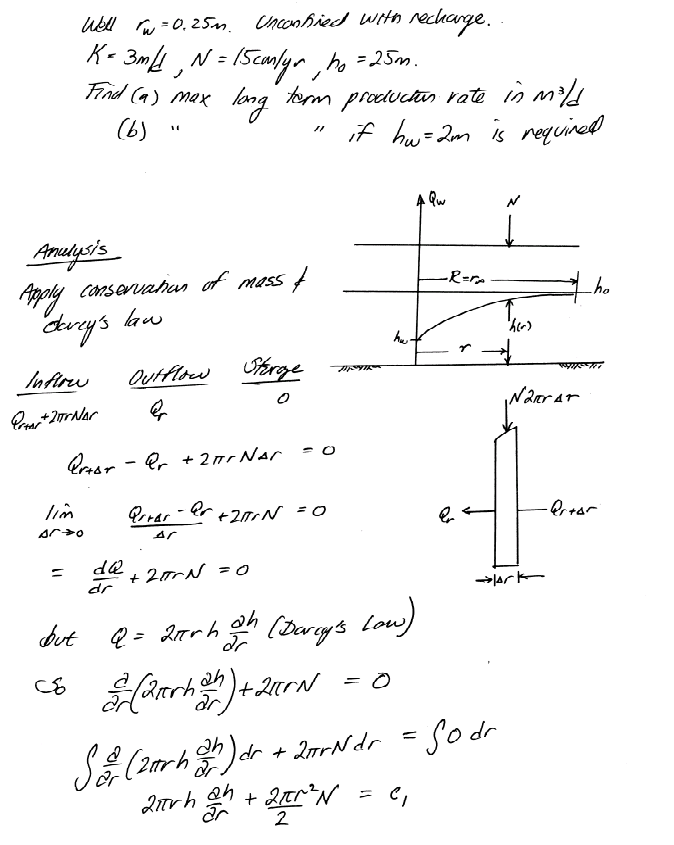 Well r_w = 0.25m. Unconfined with recharge.
K = 3m/d, N = 15cm/yr, h_o = 25m.
Find (a) max long term production rate in m³/d
(b) " " if h_w = 2m is required
Q_w N
R = r_∞
h_o
h_w
h(r)
r
Analysis
Apply conservation of mass &
darcy's law
Inflow Outflow Storge
Q_{r+Δr} + 2πrNΔr Q_r 0
N2πrΔr
Q_{r+Δr} - Q_r + 2πrNΔr = 0
lim_{Δr→0} (Q_{r+Δr} - Q_r)/Δr + 2πrN = 0
Q_r Q_{r+Δr}
Δr
= dQ/dr + 2πrN = 0
but Q = 2πrh ∂h/∂r (Darcy's Law)
∂/∂r(2πrh ∂h/∂r) + 2πrN = 0
∫ ∂/∂r (2πrh ∂h/∂r) dr + 2πrN dr = ∫0 dr
2πrh ∂h/∂r + 2πr²N/2 = c₁